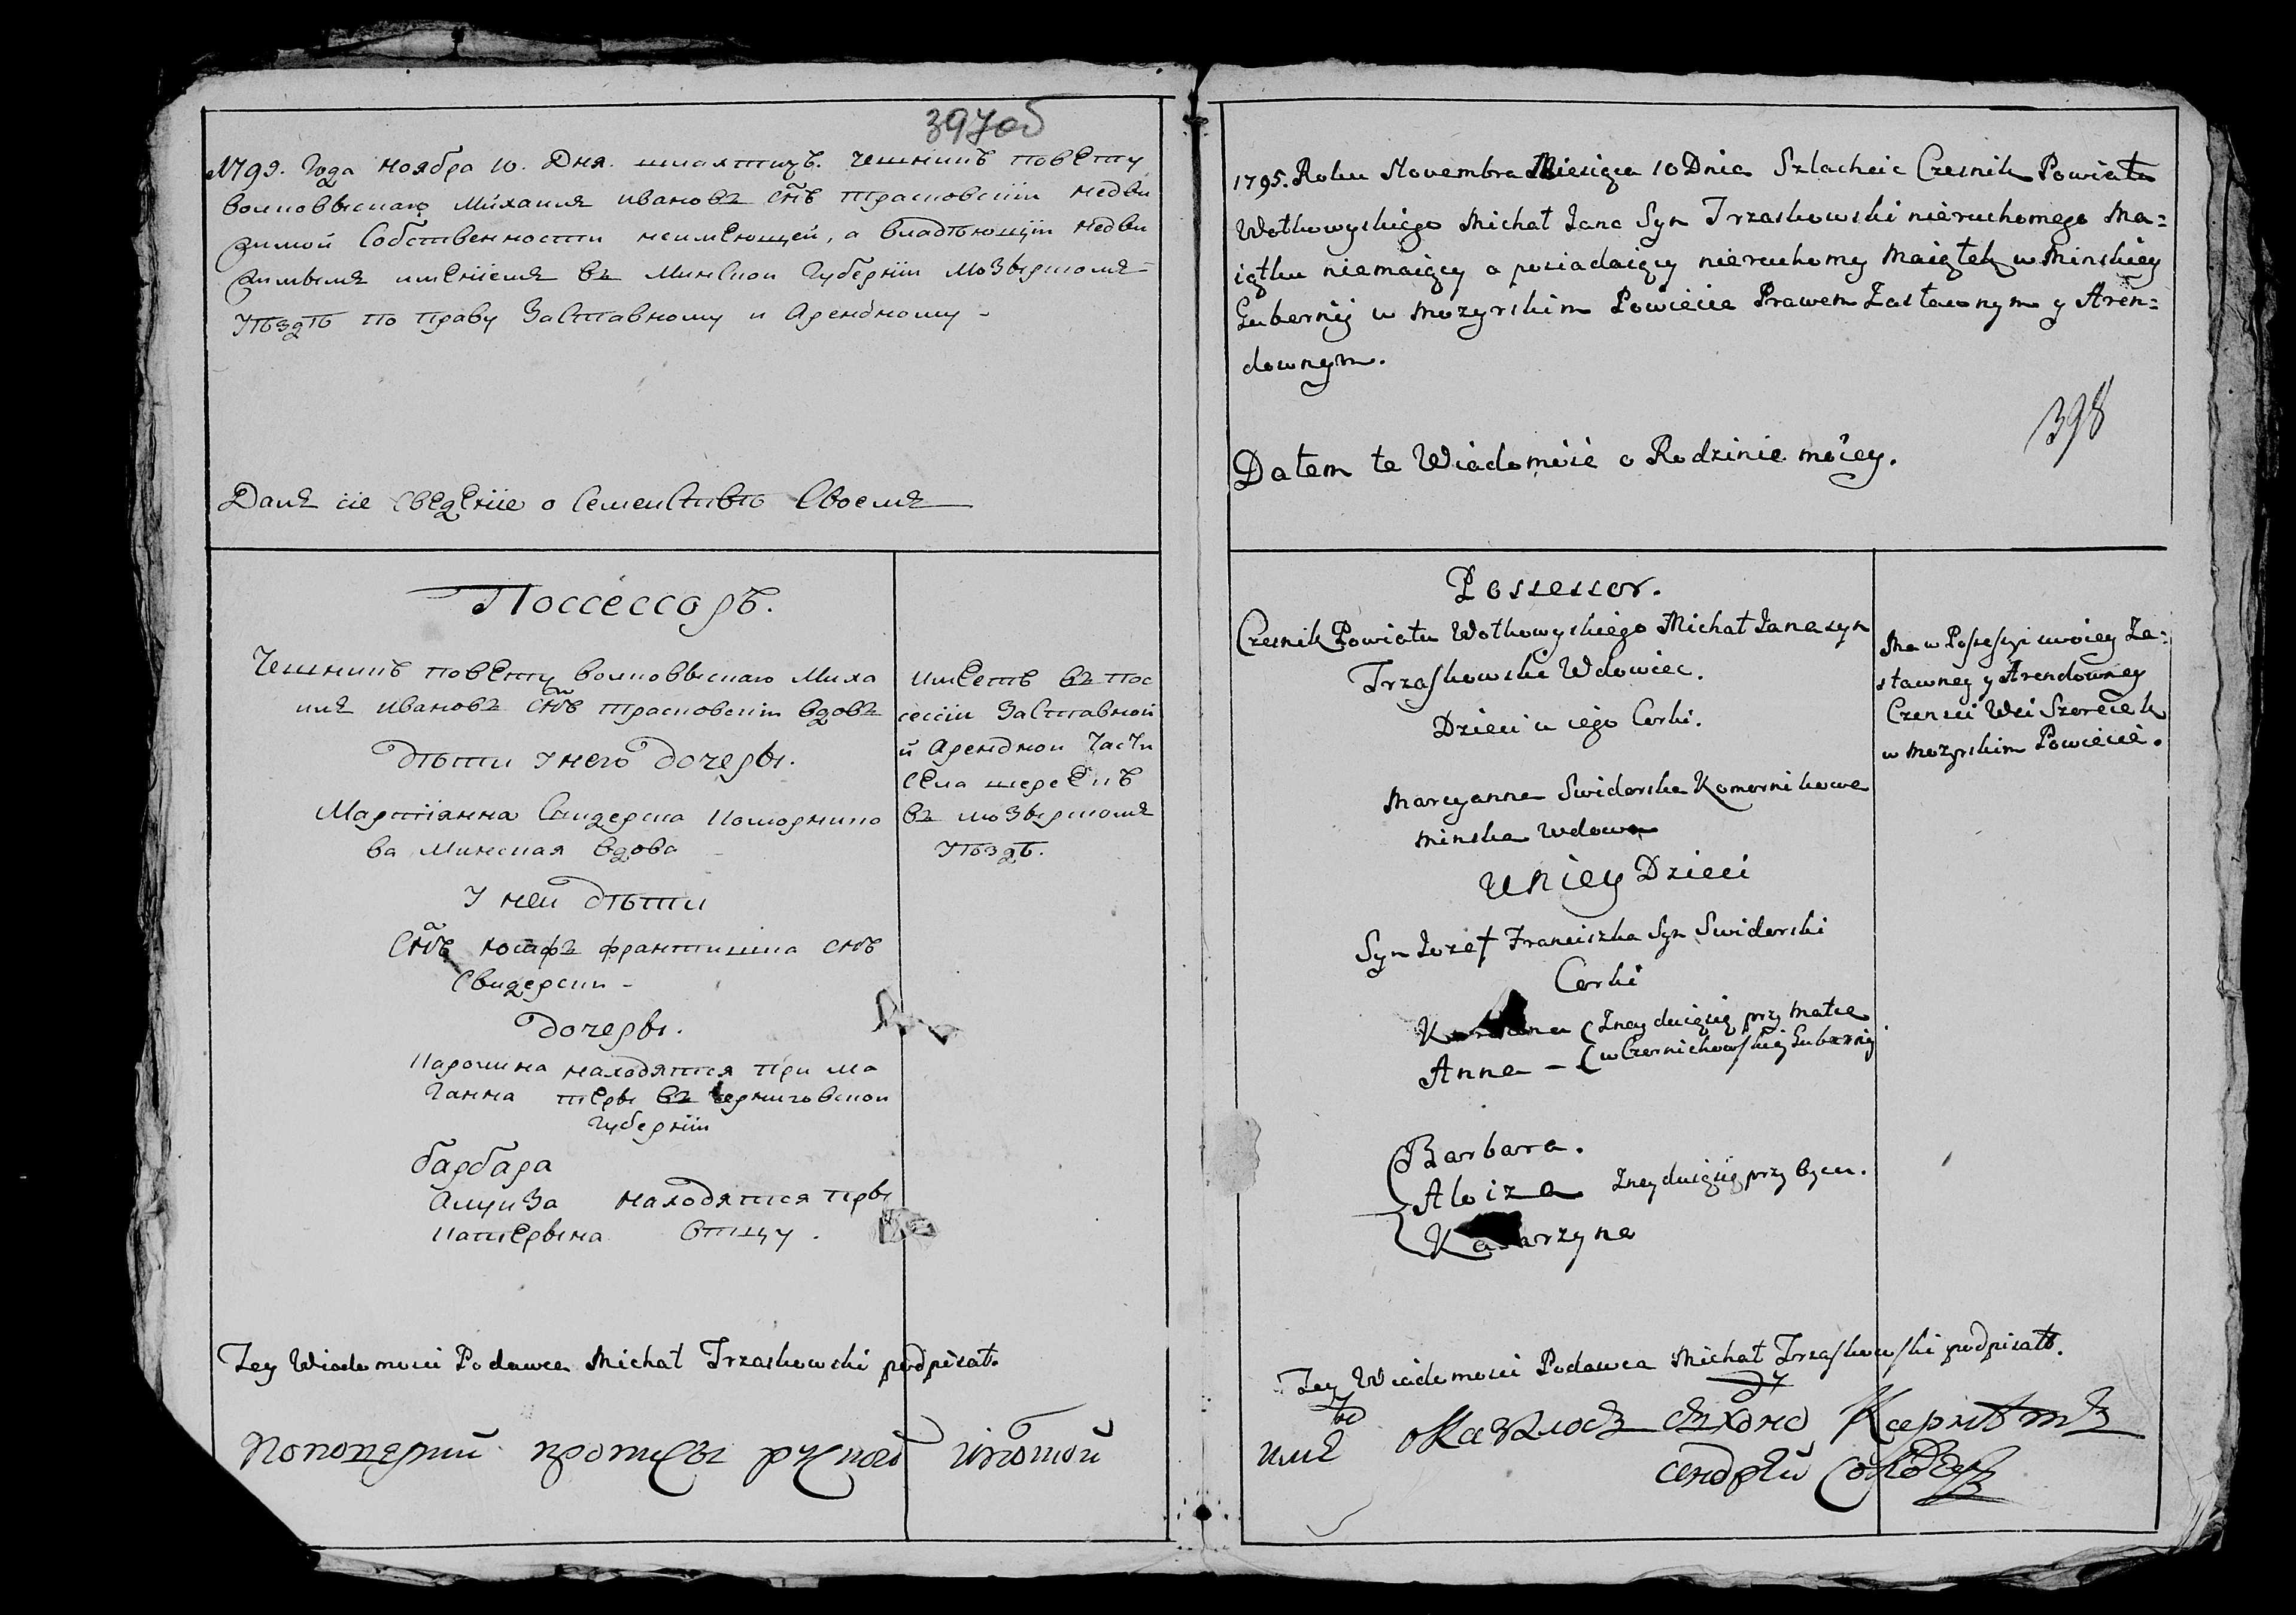 397об
1795. Года ноября 10. Дня. шляхтичъ. чешникъ повету
волковыскаго Михаилъ ивановъ снъ трасковскiи недви
жимои собственности неимеющеи, а владѣющiи недви
жимымъ имениемъ въ Минскои губернiи Мозырскомъ
уѣздѣ по праву заставному и арендному -
Далъ сiе сведенiе о семействѣ своемъ
Поссессоръ.
Чешникъ повету волковыскаго Миха
илъ ивановъ снъ трасковскiи вдовъ
дѣти у него дочеры.
Мартiянна Свидерска коморнико
ва Минская вдова
у неи дѣти
Снъ иосифъ франтишка снъ
Свидерски -
Дочеры.
Каролина находятся при ма
Ганна теры въ черниговскои
губернiи
барбара
алуиза находятся пры
катерына отцу.
имеетъ въ пос
сессiи заставнои
и арендной части
села шерекъ
въ мозырскомъ
уѣздѣ.
Tey Wiadomosci Podawca Michał Trzaskowski podpisał.
1795. Roku Novembra Miesiąca 10 Dnia Szlachcic Czesnik Powiatu
Wołkowyskiego Michał Jana Syn Trzaskowski nieruchomego Ma=
iątku niemaiący a posiadaiący nieruchomy Maiątek w Minskiey
Gubernij w Mozyrskim Powiecie Prawem Zastawnym y Aren=
downym.
398
Dałem te Wiadomość o Rodzinie moiey.
Possessor.
Czesnik Powiatu Wołkowyskiego Michał Jana syn
Trzaskowski Wdowiec.
Dzieci u iego Corki.
Maryanna Swiderska Komornikowa
Minska Wdowa
U niey Dzieci
Syn Jozef Franciszka Syn Swiderski
Corki
Karolina (Znayduiąsię przy Matce
Anna - (w Czernichowskiey Gubernij
Barbara.
Aloiza Znayduiąsię przy Oycu.
Katarzyna
Ma w Possessyi swoiey Za=
stawney y Arendowney
Czensci Wsi Szereck
w Mozyrskim Powiecie.
Tey Wiadomosci Podawca Michał Trzaskowski podpisał.